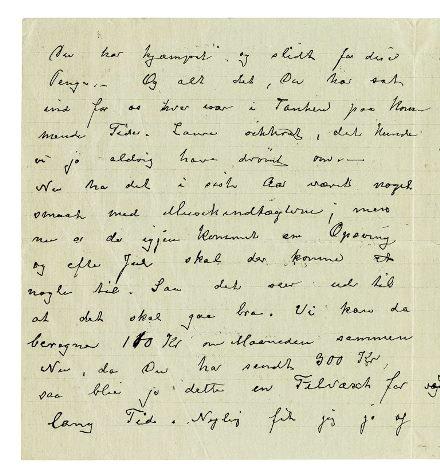 Du har kjæmpet og slidt for disse
Penge. – Og alt det, Du har sat
ind for os hver især i Tanken paa kom-
mende Tider. Laura, det kunde
vi jo aldrig have drømt om –
Nu har det i siste Aar været noget
smaat med Musikindtægterne, men
nu er der igjen kommet en Opsving
og efter Jul skal der komme
nogle til. Saa det ser ud til
at det skal gaa bra. Vi kan da
beregne 100 Kr om Maaneden sammen
Nu, da Du har sendt 300 Kr,
saa blir jo dette en Tilvæxt for
lang Tid. Nylig fik jeg jo og